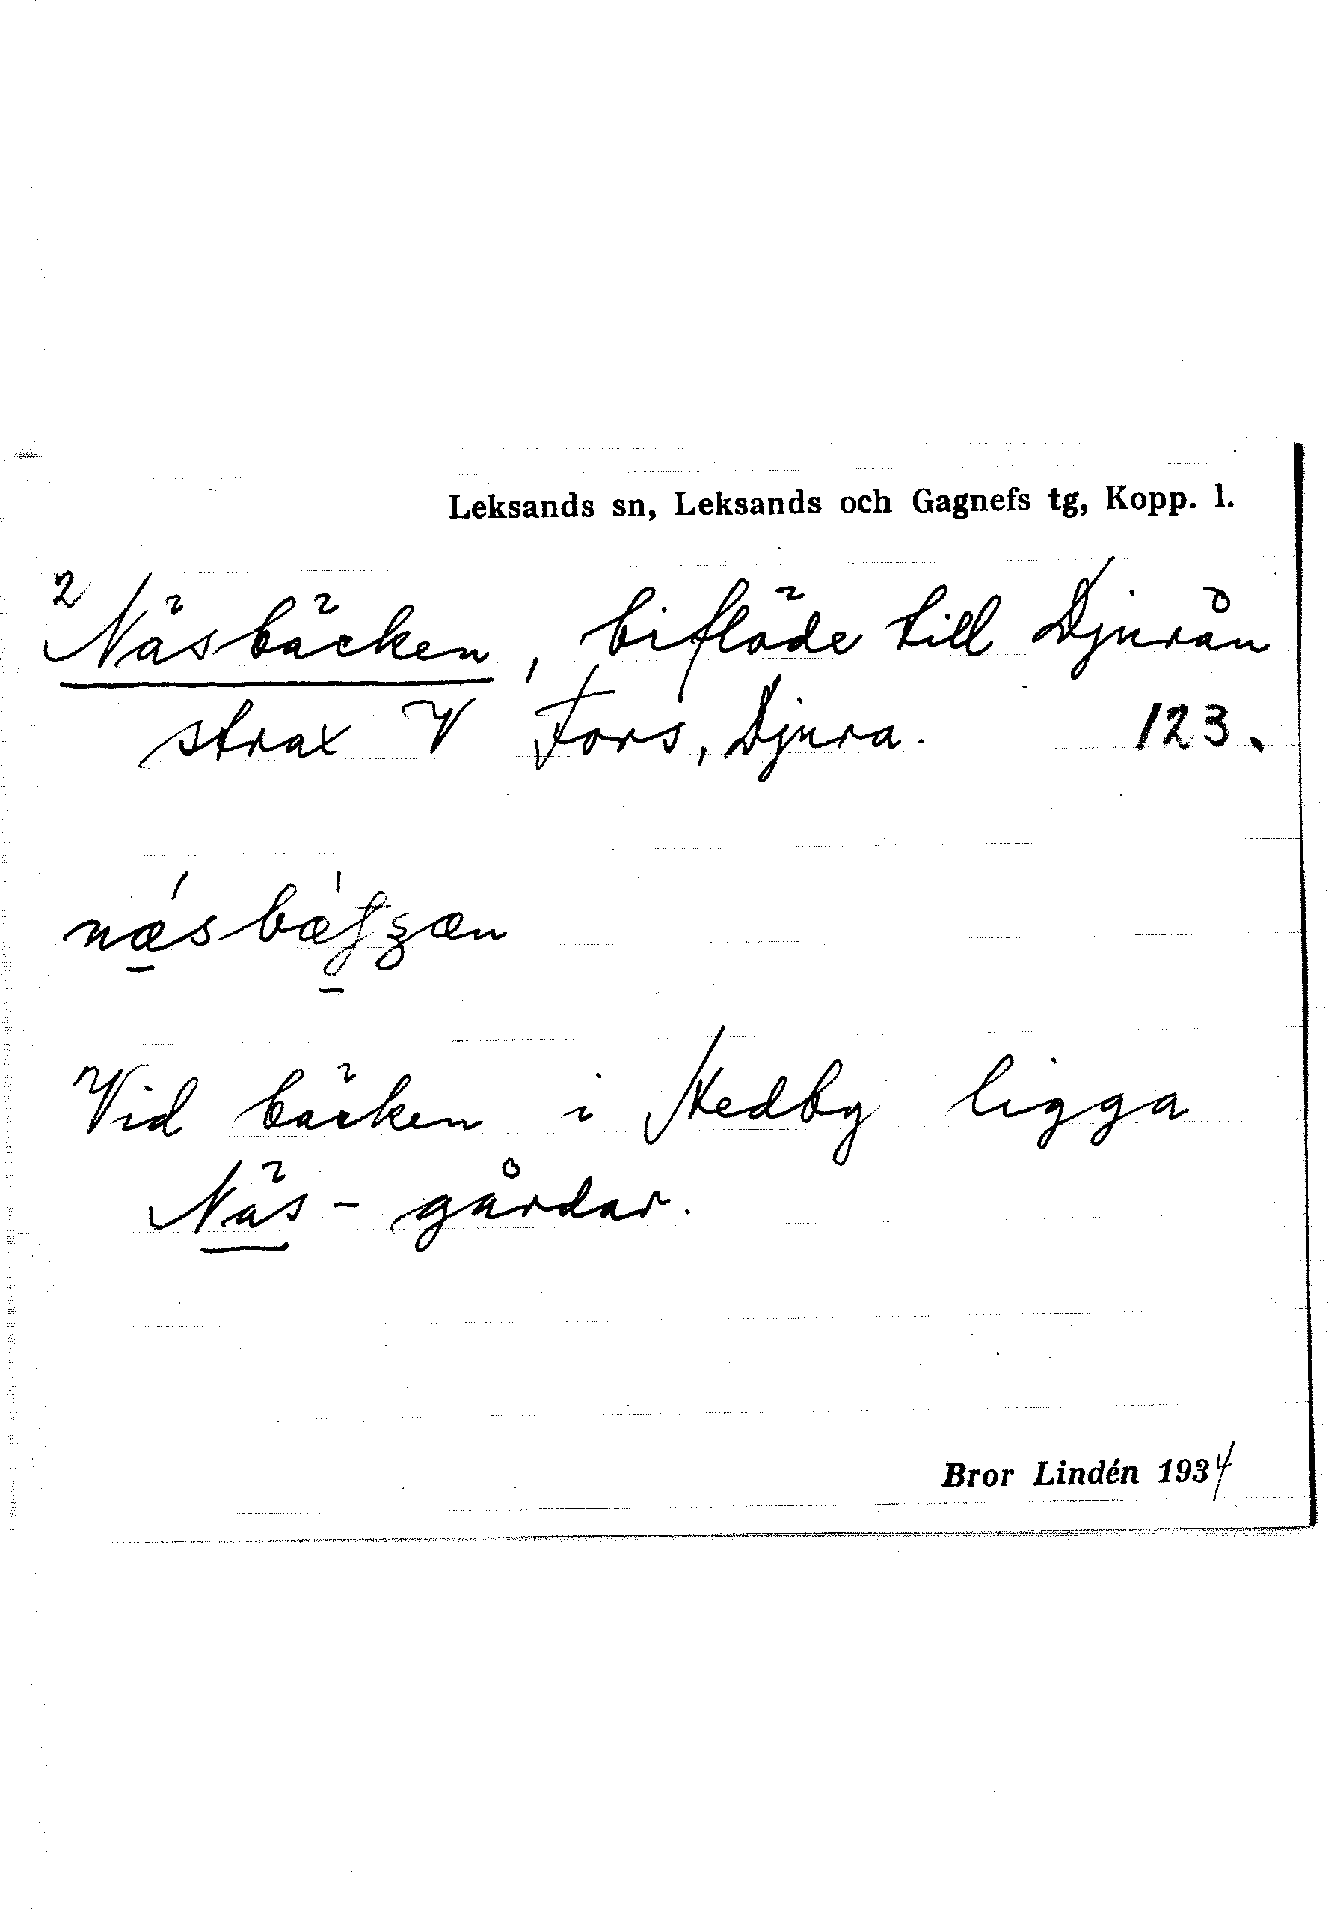 Leksands sn, Leksands och Gagnefs tg, Kopp. l.
2 Näsbäcken, biflöde till Djurån
strax V Fors, Djura. 123.
Vid bäcken i Hedby ligga
Näs- gårdar.
Bror Lindén 1934